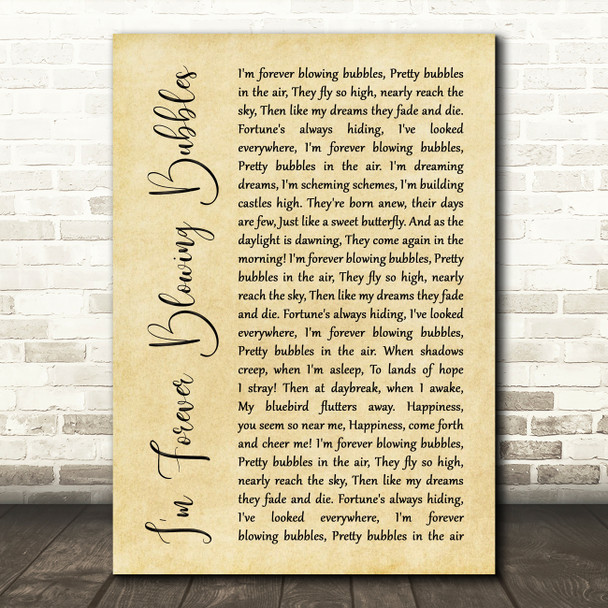 I'm Forever Blowing Bubbles
I'm forever blowing bubbles, Pretty bubbles
in the air, They fly so high, nearly reach the
sky, Then like my dreams they fade and die.
Fortune's always hiding, I've looked
everywhere, I'm forever blowing bubbles,
Pretty bubbles in the air. I'm dreaming
dreams, I'm scheming schemes, I'm building
castles high. They're born anew, their days
are few, Just like a sweet butterfly. And as the
daylight is dawning, They come again in the
morning! I'm forever blowing bubbles, Pretty
bubbles in the air, They fly so high, nearly
reach the sky, Then like my dreams they fade
and die. Fortune's always hiding, I've looked
everywhere, I'm forever blowing bubbles,
Pretty bubbles in the air. When shadows
creep, when I'm asleep, To lands of hope
I stray! Then at daybreak, when I awake,
My bluebird flutters away. Happiness,
you seem so near me, Happiness, come forth
and cheer me! I'm forever blowing bubbles,
Pretty bubbles in the air, They fly so high,
nearly reach the sky, Then like my dreams
they fade and die. Fortune's always hiding,
I've looked everywhere, I'm forever
blowing bubbles, Pretty bubbles in the air